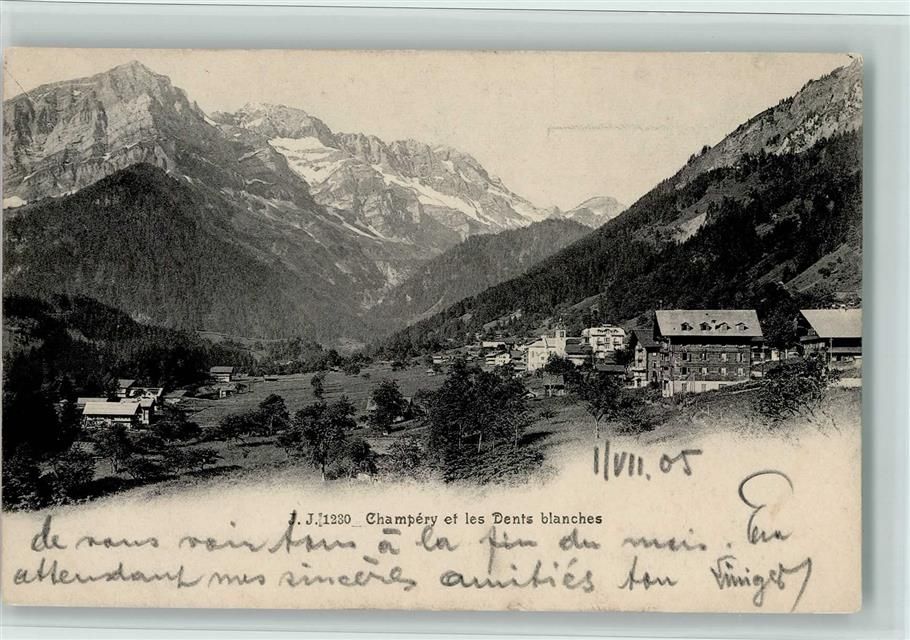 1/VII. 05
J. J. 1230 Champéry et les Dents blanches
de vous voir tous à la fin du mois. En
attendant mes sincères amitiés ton